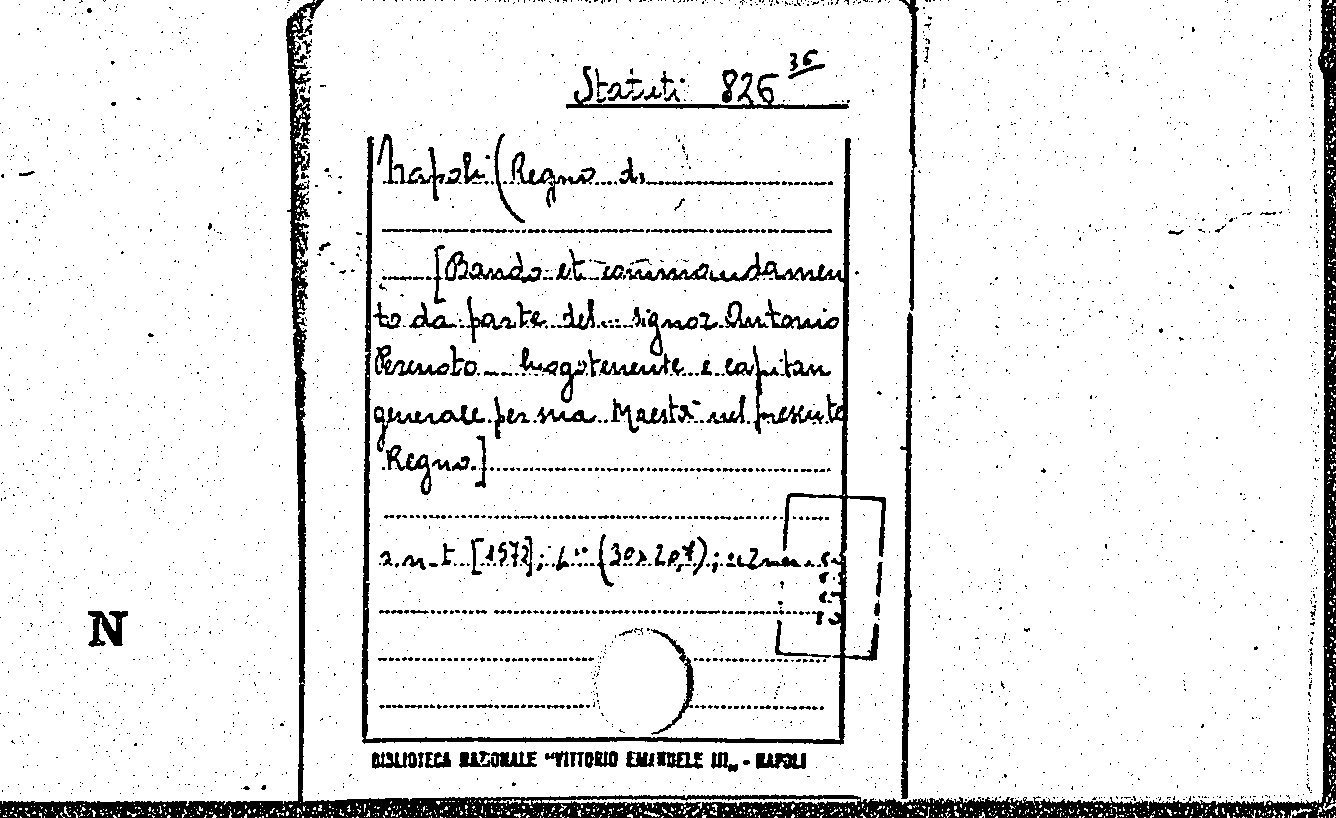 Statuti 826 36
Napoli (Regno di
[Bando et commandamen
to da parte del... signor Antonio
Perenoto... luogotenente e capitan
generale per sua Maestà nel presente
Regno.]
s.n.t. [1572];
N
BIBLIOTECA NAZIONALE "VITTORIO EMANUELE III" - NAPOLI